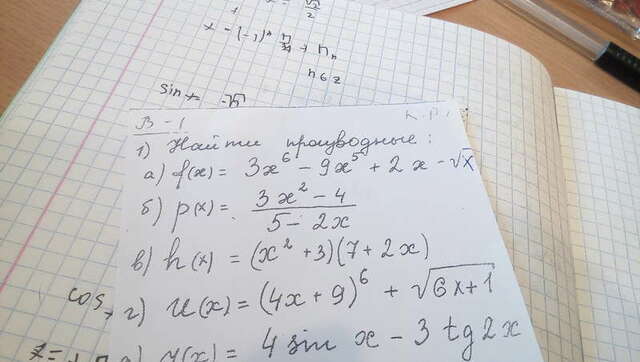 √2/2
x = (-1)ⁿ π/4 + πn
n∈Z
sin x
В-1
1) Найти производные:
а) f(x) = 3x⁶ - 9x⁵ + 2x - √x
б) p(x) = (3x² - 4)/(5 - 2x)
в) h(x) = (x² + 3)(7 + 2x)
г) u(x) = (4x + 9)⁶ + √(6x + 1)
cos
4 sin x - 3 tg 2x